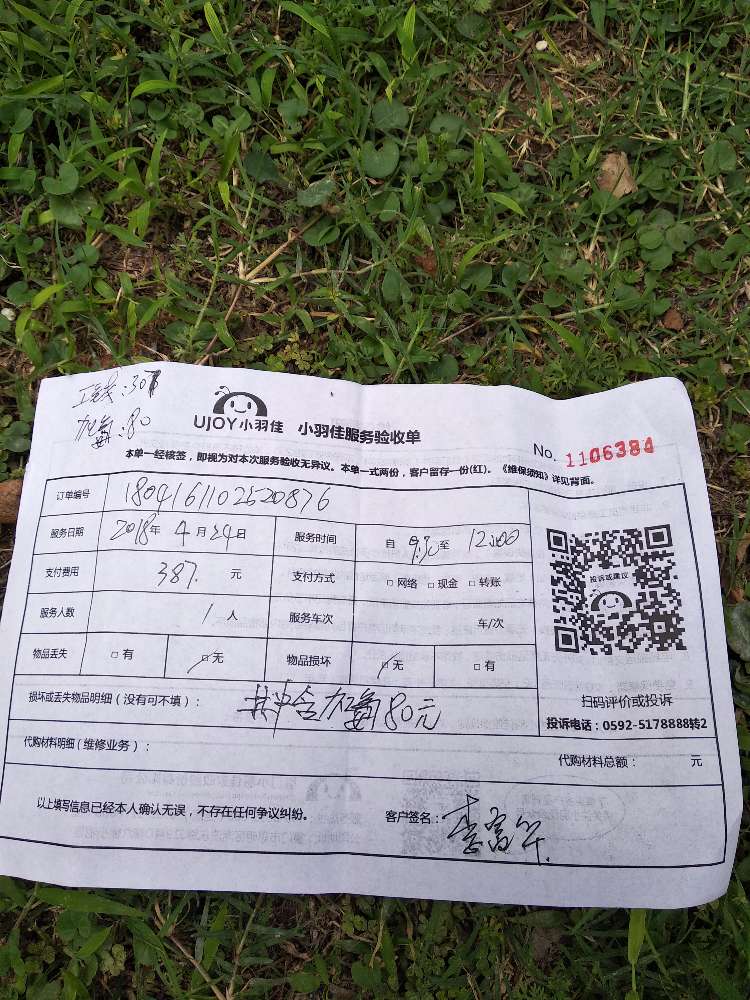 工钱:307
加氟:80
UJOY小羽佳 小羽佳服务验收单
No. 1106384
本单一经核签，即视为对本次服务验收无异议。本单一式两份，客户留存一份(红)。《维保须知》详见背面。
订单编号 1804161102520876
服务日期 2018年4月24日 服务时间 自9:30至12:00
支付费用 387.元 支付方式 □网络 □现金 □转账
服务人数 1人 服务车次 车/次
物品丢失 □有 □无 物品损坏 □无 □有
投诉或建议
扫码评价或投诉
投诉电话：0592-5178888转2
损坏或丢失物品明细（没有可不填）： 其中含加氟80元
代购材料明细（维修业务）： 代购材料总额： 元
以上填写信息已经本人确认无误，不存在任何争议纠纷。 客户签名：